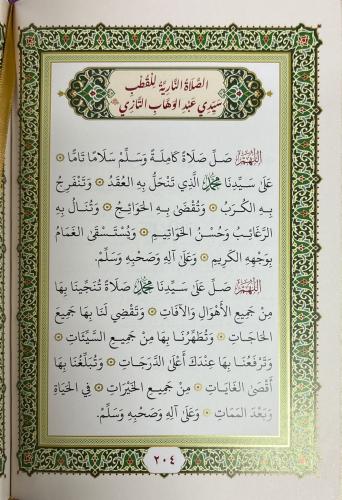 الصَّلَاةُ النَّارِيَّةُ لِلْقُطْبِ
سَيِّدِي عَبْدِ الوَهَّابِ التَّازِي
اللَّهُمَّ صَلِّ صَلَاةً كَامِلَةً وَسَلِّمْ سَلَامًا تَامًّا
عَلَى سَيِّدِنَا مُحَمَّدٍ الَّذِي تَنْحَلُّ بِهِ العُقَدُ وَتَنْفَرِجُ
بِهِ الكُرَبُ وَتُقْضَى بِهِ الحَوَائِجُ وَتُنَالُ بِهِ
الرَّغَائِبُ وَحُسْنُ الخَوَاتِيمِ وَيُسْتَسْقَى الغَمَامُ
بِوَجْهِهِ الكَرِيمِ وَعَلَى آلِهِ وَصَحْبِهِ وَسَلِّمْ.
اللَّهُمَّ صَلِّ عَلَى سَيِّدِنَا مُحَمَّدٍ صَلَاةً تُنَجِّينَا بِهَا
مِنْ جَمِيعِ الأَهْوَالِ وَالآفَاتِ وَتَقْضِي لَنَا بِهَا جَمِيعَ
الحَاجَاتِ وَتُطَهِّرُنَا بِهَا مِنْ جَمِيعِ السَّيِّئَاتِ
وَتَرْفَعُنَا بِهَا عِنْدَكَ أَعْلَى الدَّرَجَاتِ وَتُبَلِّغُنَا بِهَا
أَقْصَى الغَايَاتِ مِنْ جَمِيعِ الخَيْرَاتِ فِي الحَيَاةِ
وَبَعْدَ المَمَاتِ وَعَلَى آلِهِ وَصَحْبِهِ وَسَلِّمْ.
٢٠٤